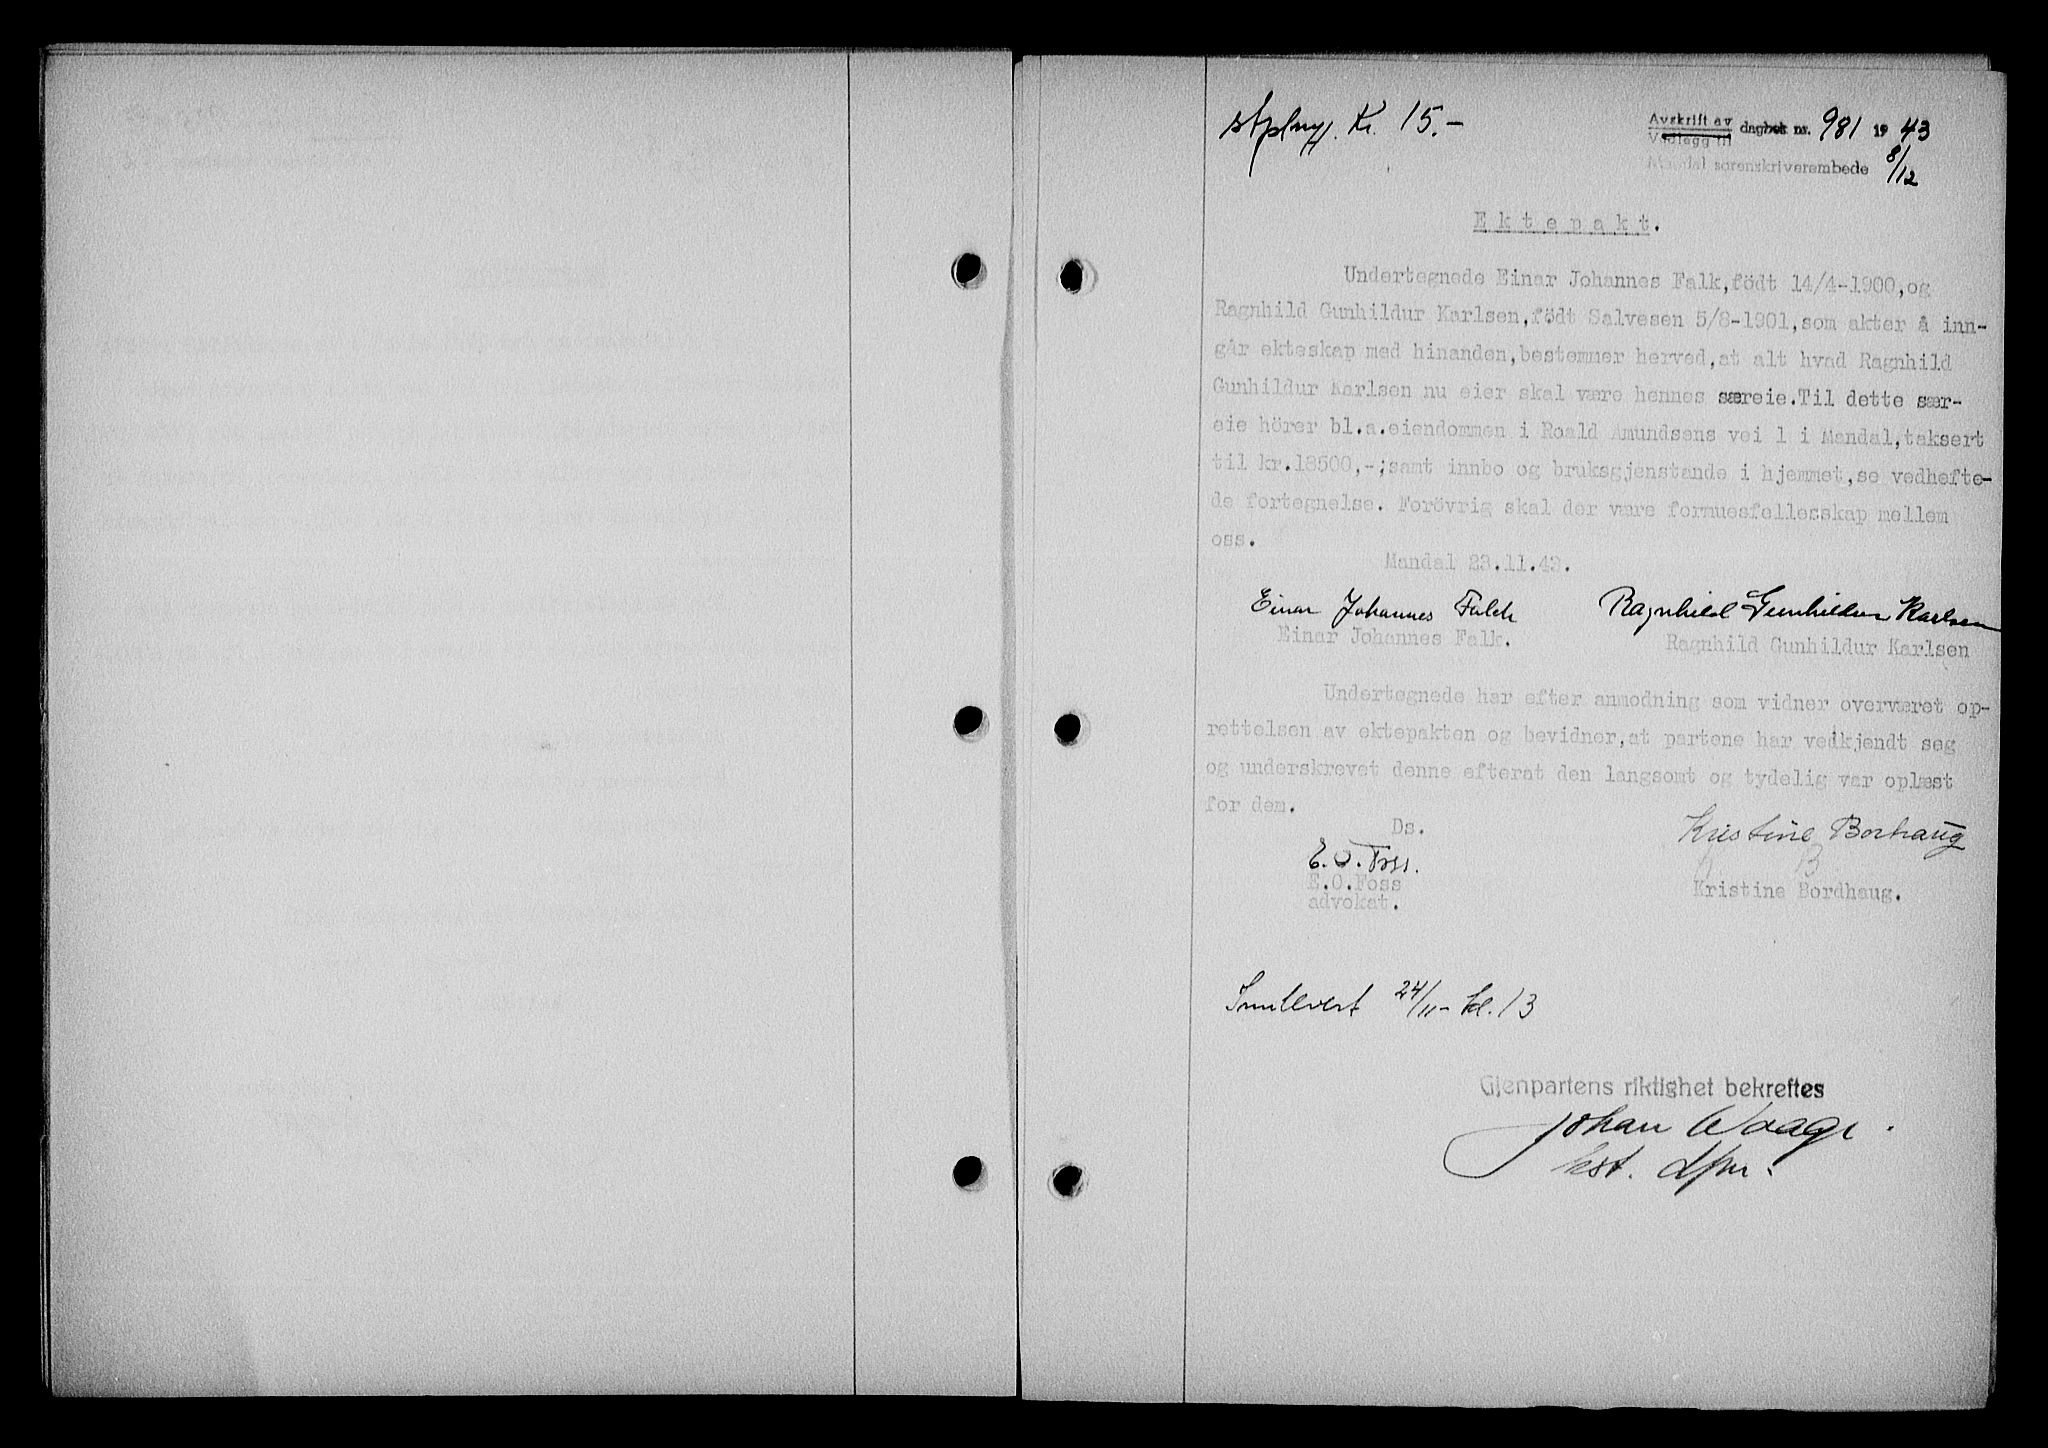 stplmf. Kr. 15.-
Avskrift av
Vedlegg til
dagbok nr. 981 1943
Mandal sorenskriverembede 8/12
Ektepakt.
Undertegnede Einar Johannes Falk,födt 14/4-1900,og
Ragnhild Gunhildur Karlsen,födt Salvesen 5/8-1901,som akter å inn-
går ekteskap med hinanden,bestemmer herved,at alt hvad Ragnhild
Gunhildur Karlsen nu eier skal være hennes særeie.Til dette sær-
eie hörer bl.a.eiendommen i Roald Amundsens vei 1 i Mandal,taksert
til kr.18500,-;samt innbo og bruksgjenstande i hjemmet,se vedhefte-
de fortegnelse. Forövrig skal der være formuesfellesskap mellem
oss.
Mandal 23.11.43.
Einar Johannes Falck
Ragnhild Gunhildur Karlsen
Einar Johannes Falk.
Ragnhild Gunhildur Karlsen
Undertegnede har efter anmodning som vidner overværet op-
rettelsen av ektepakten og bevidner,at partene har vedkjendt seg
og underskrevet denne efterat den langsomt og tydelig var oplæst
for dem.
Ds.
E.O.Foss.
Kristine Borhaug
E.O.Foss
advokat.
K B
Kristine Bordhaug.
Innlevert 24/11- kl. 13
Gjenpartens riktighet bekreftes
Johan Waage.
kst.